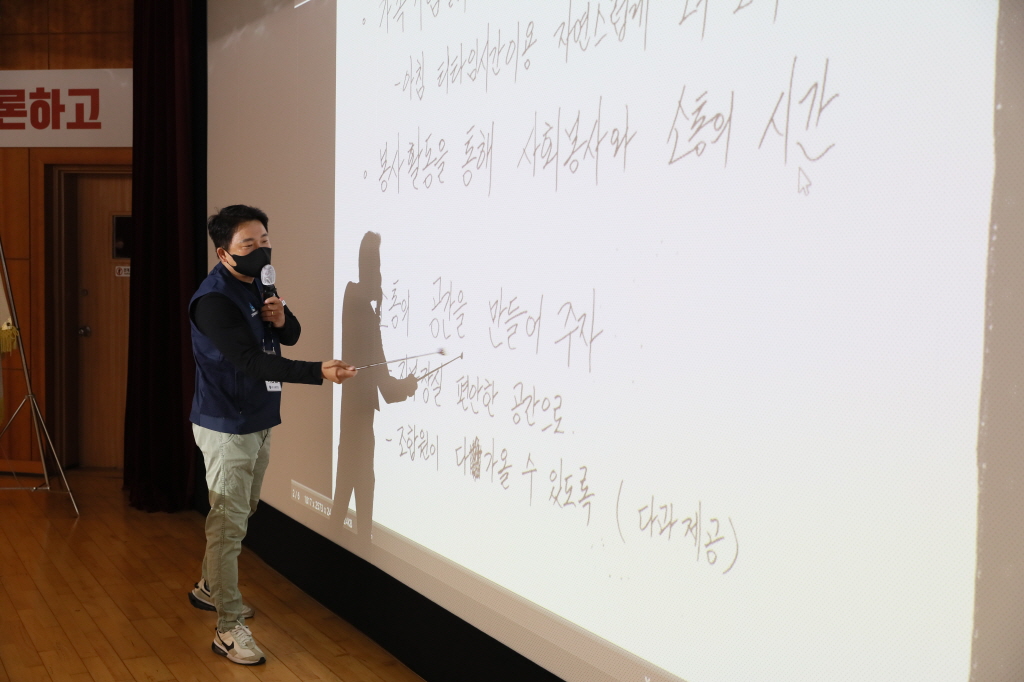 론하고
- 아침 티타임시간이용 자연스럽게
◦ 봉사활동을 통해 사회봉사와 소통의 시간
소통의 공간을 만들어 주자
편안한 공간으로.
- 조합원이 다가올 수 있도록 (다과제공)